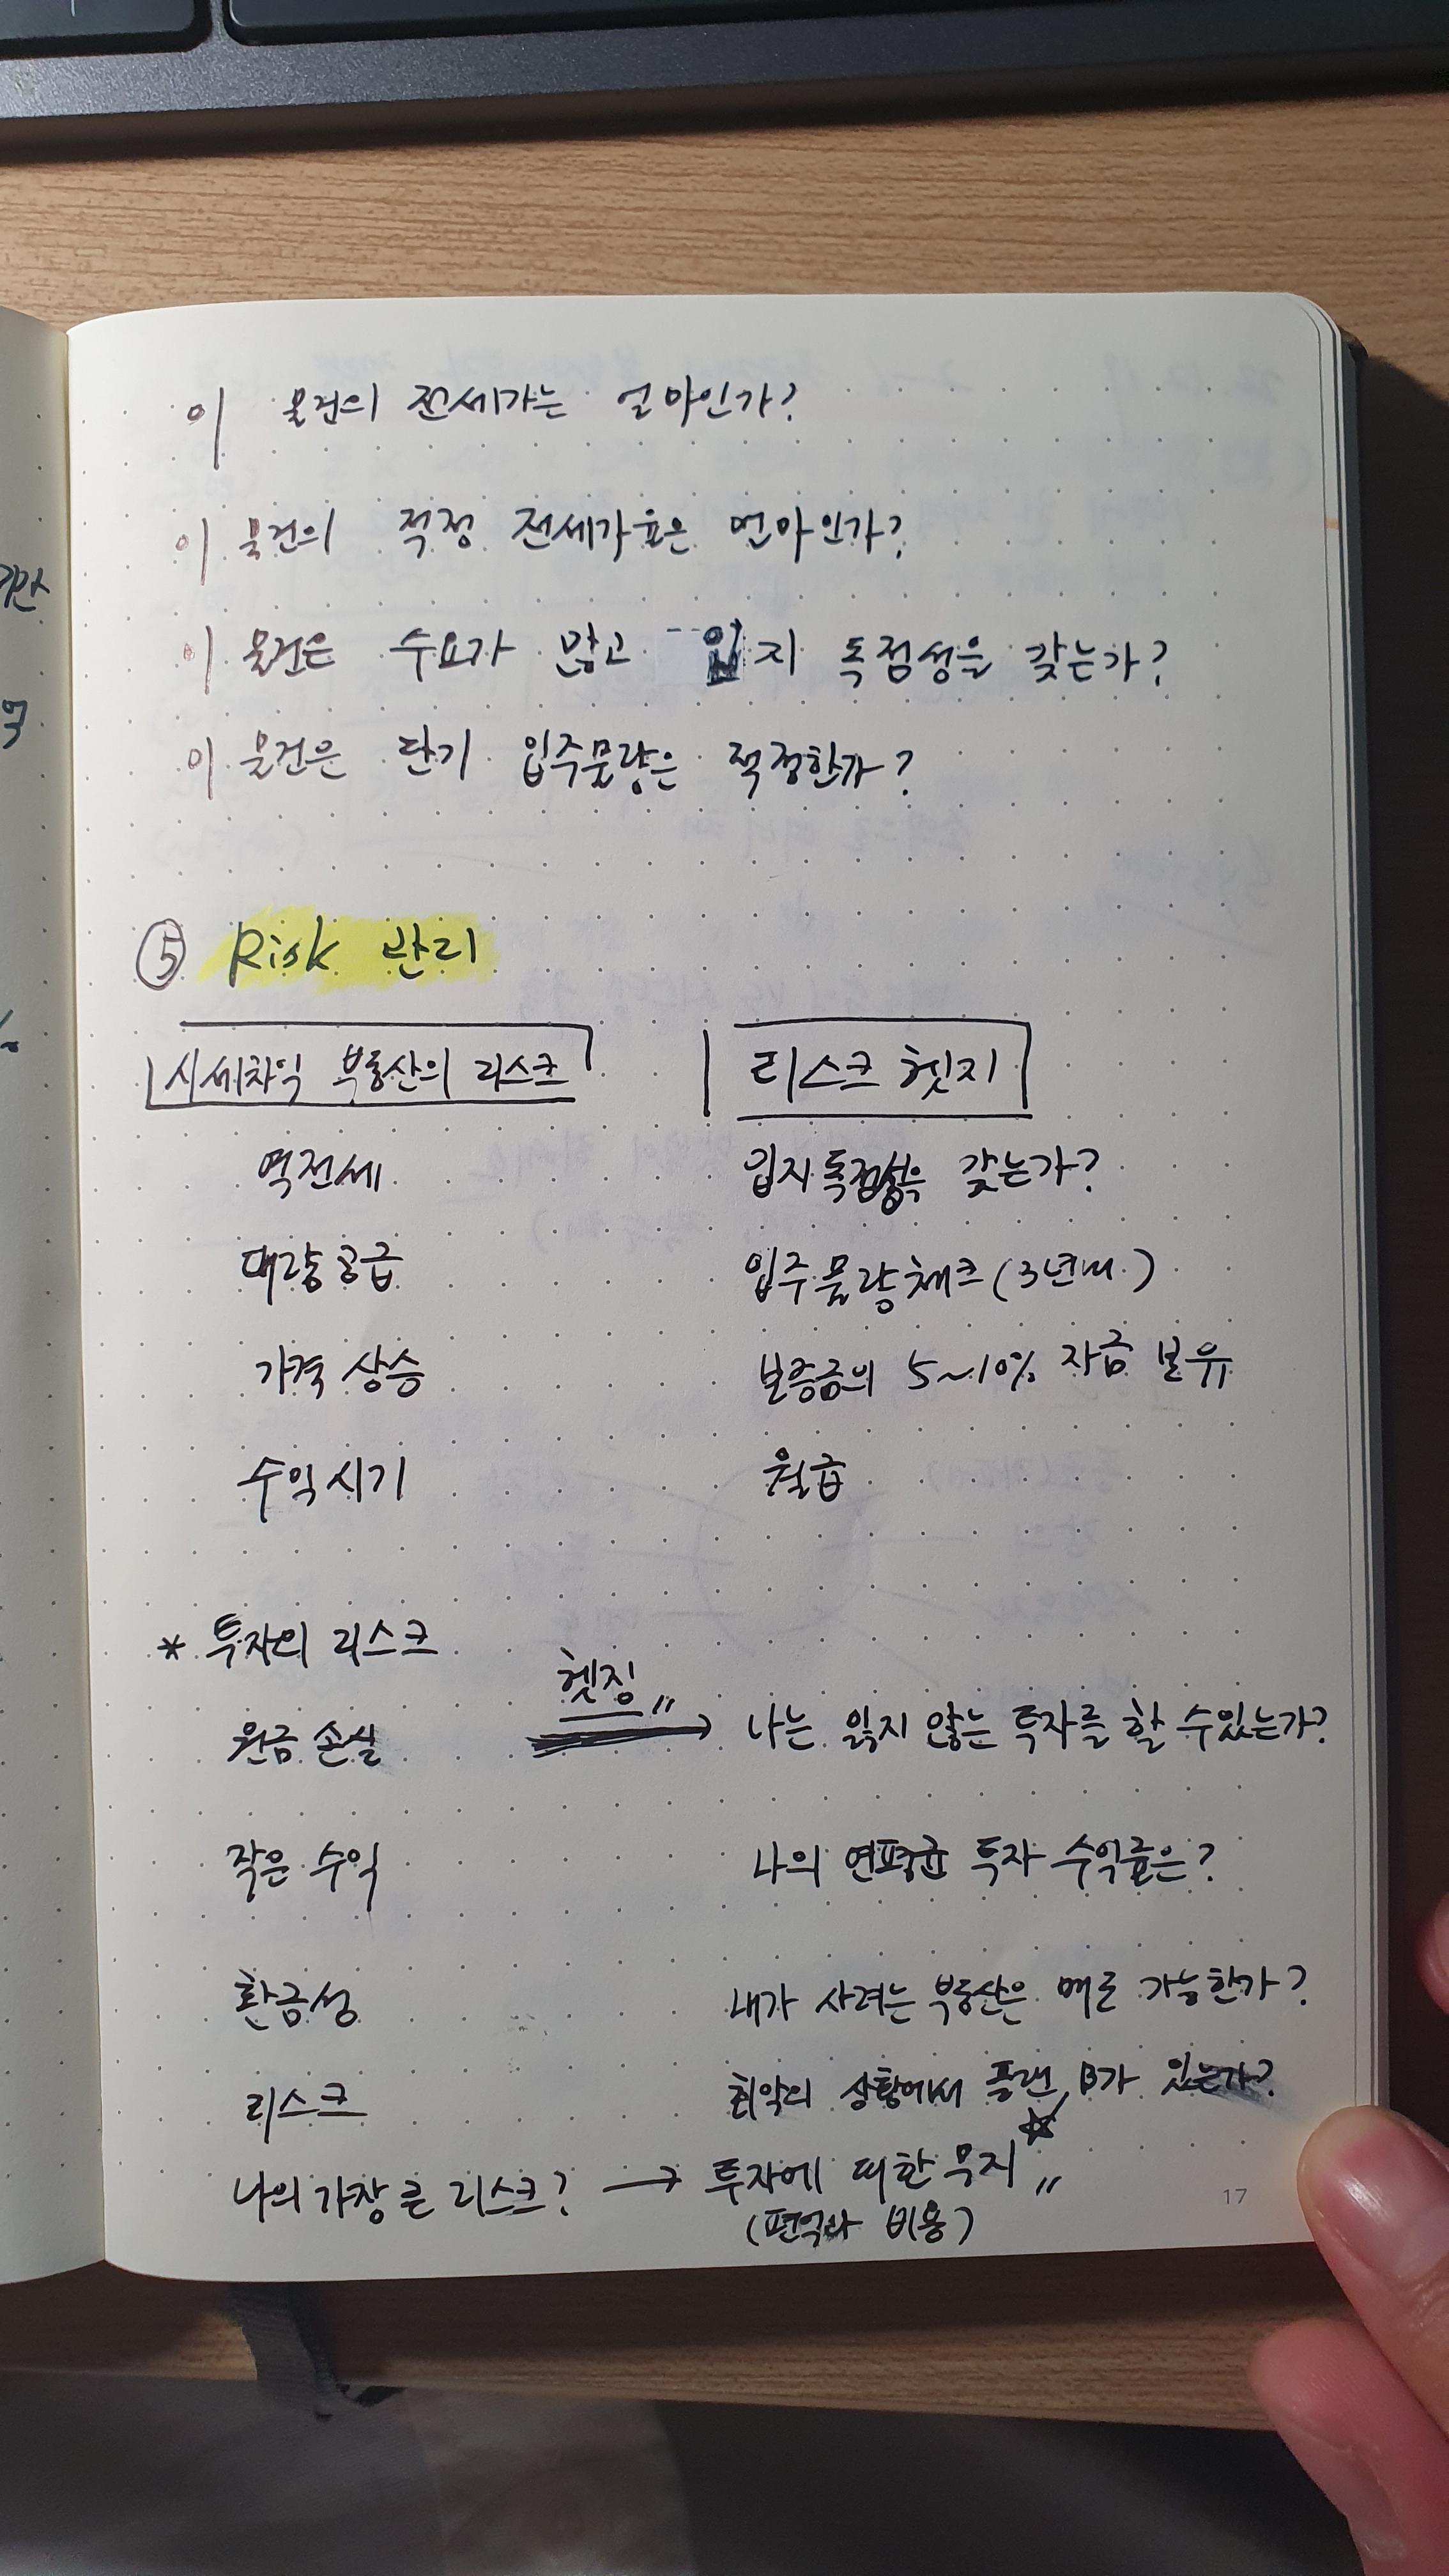 이 물건의 전세가는 얼마인가?
이 물건의 적정 전세가율은 얼마인가?
이 물건은 수요가 많고 입지 독점성을 갖는가?
이 물건은 단기 입주물량은 적정한가?
⑤ Risk 관리
시세차익 부동산의 리스크 리스크 헷지
역전세 입지독점성을 갖는가?
대량공급 입주물량체크(3년내)
가격 상승 보증금의 5~10% 자금 보유
수익시기 월급
* 투자의 리스크
헷징〃
원금 손실 → 나는 잃지 않는 투자를 할 수 있는가?
작은 수익 나의 연평균 투자 수익률은?
환금성 내가 사려는 부동산은 매도 가능한가?
리스크 최악의 상황에서 플랜B가 있는가?
나의 가장 큰 리스크? → 투자에 대한 무지〃
(편익과 비용)
17